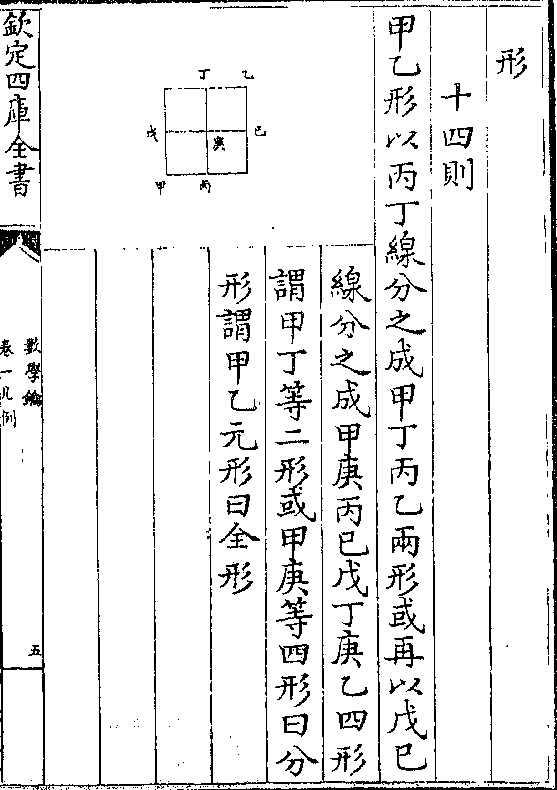 形
十四則
甲乙形以丙丁線分之成甲丁丙乙兩形或再以戊巳
線分之成甲庚丙巳戊丁庚乙四形
謂甲丁等二形或甲庚等四形曰分
形謂甲乙元形曰全形
乙
丁
巳
庚
戊
丙
甲
欽定四庫全書
數學鑰
卷一凡例
五